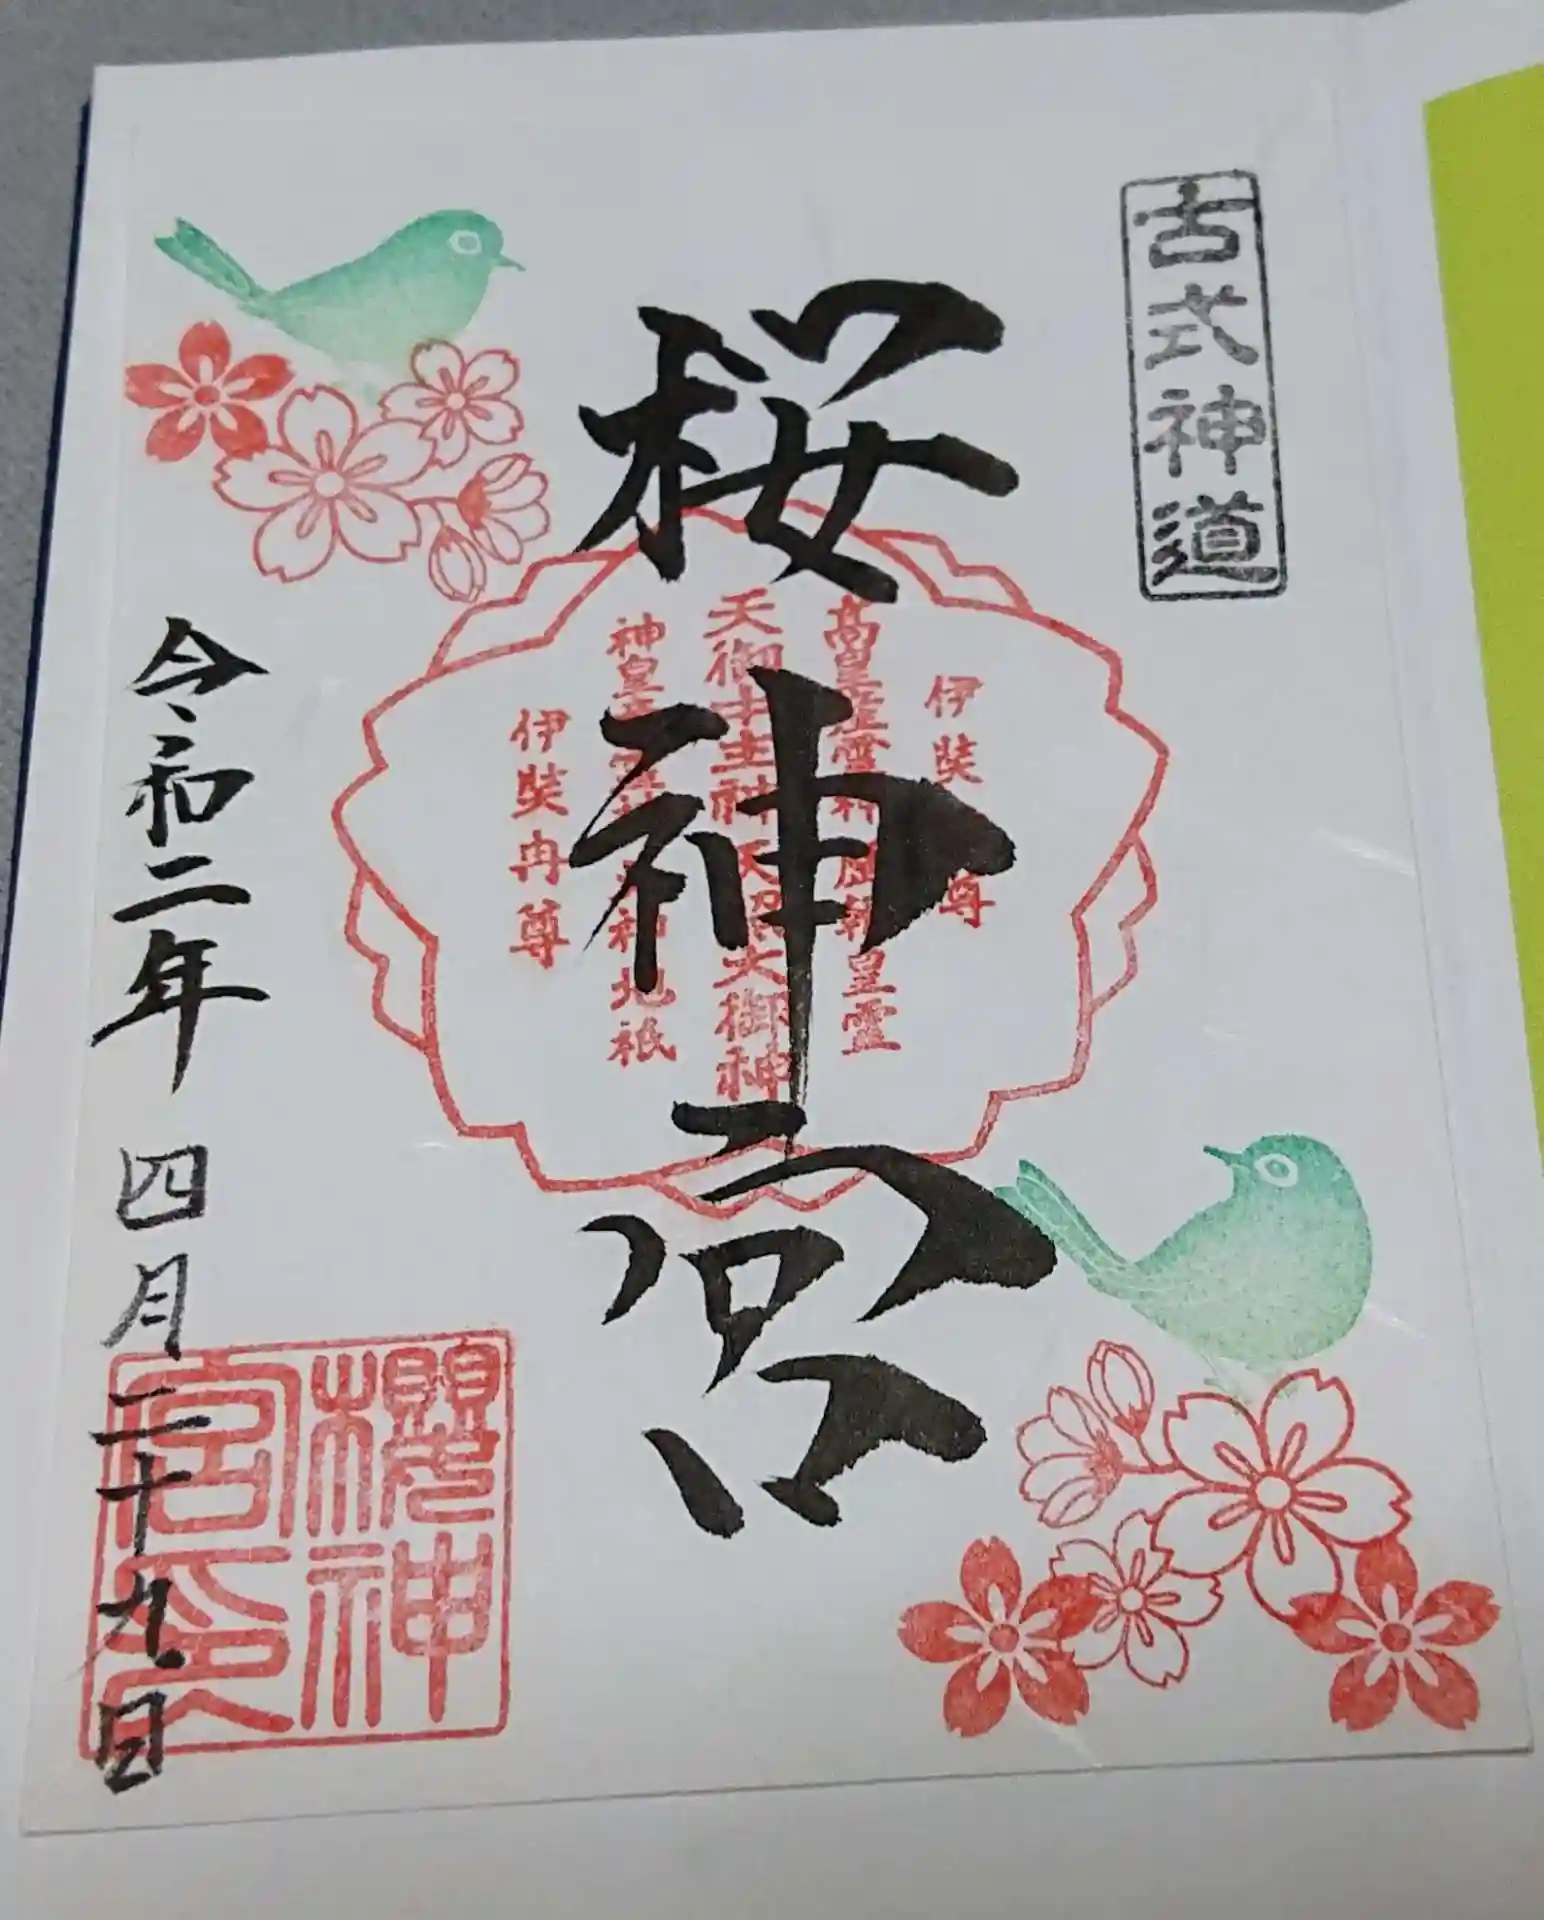 古式神道
桜神宮
伊弉
尊
高皇産霊神歴朝皇霊
天御中主神天照大御神
神皇
神地祇
伊弉冉尊
令和二年四月二十九日
櫻神宮印